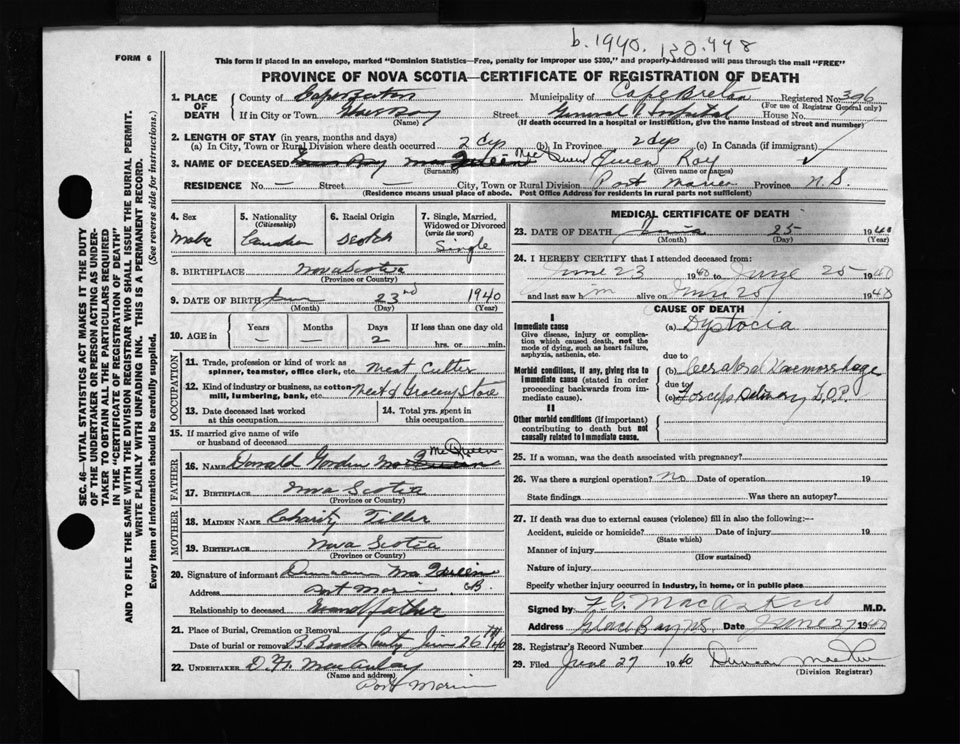 b. 1940. 130.448
FORM 6
This form if placed in an envelope, marked "Dominion Statistics—Free, penalty for improper use $300," and property addressed will pass through the mail "FREE"
PROVINCE OF NOVA SCOTIA—CERTIFICATE OF REGISTRATION OF DEATH
1. PLACE OF DEATH County of Cape Breton Municipality of Cape Breton Registered No. 396
(For use of Registrar General only)
If in City or Town Glace Bay Street General Hospital House No.
(If death occurred in a hospital or institution, give the name instead of street and number)
2. LENGTH OF STAY (in years, months and days)
(a) In City, Town or Rural Division where death occurred 2 dys (b) In Province 2 dys (c) In Canada (if immigrant)
3. NAME OF DECEASED McQueen Roy
(Surname) (Given name or names)
RESIDENCE No. — Street City, Town or Rural Division Port Morien Province N. S.
(Residence means usual place of abode. Post Office Address for residents in rural parts not sufficient)
4. Sex Male
5. Nationality (Citizenship) Canadian
6. Racial Origin Scotch
7. Single, Married, Widowed or Divorced (write the word) Single
8. BIRTHPLACE Nova Scotia
(Province or Country)
9. DATE OF BIRTH June 23rd 1940
(Month) (Day) (Year)
10. AGE in Years — Months — Days 2 If less than one day old hrs. or min.
OCCUPATION
11. Trade, profession or kind of work as spinner, teamster, office clerk, etc. Meat Cutter
12. Kind of industry or business, as cotton-mill, lumbering, bank, etc. Meat & Grocery Store
13. Date deceased last worked at this occupation
14. Total yrs. spent in this occupation
15. If married give name of wife or husband of deceased
FATHER
16. NAME Donald Gordon McQueen
17. BIRTHPLACE Nova Scotia
(Province or Country)
MOTHER
18. MAIDEN NAME Charity Tiller
19. BIRTHPLACE Nova Scotia
(Province or Country)
20. Signature of informant Duncan McQueen
Address Port Morien C.B.
Relationship to deceased Grandfather
21. Place of Burial, Cremation or Removal
Date of burial or removal June 26th/40
22. UNDERTAKER D. H. MacAulay
(Name and address)
Port Morien
MEDICAL CERTIFICATE OF DEATH
23. DATE OF DEATH June 25 1940
(Month) (Day) (Year)
24. I HEREBY CERTIFY that I attended deceased from:
June 23 1940 to June 25 1940
and last saw him alive on June 25 1940
CAUSE OF DEATH
I
Immediate cause
Give disease, injury or complication which caused death, not the mode of dying, such as heart failure, asphyxia, asthenia, etc.
(a) Dystocia
due to
Morbid conditions, if any, giving rise to immediate cause (stated in order proceeding backwards from immediate cause).
(b) Cerebral Haemorrhage
due to
(c) Forceps Delivery L.O.P.
II
Other morbid conditions (if important) contributing to death but not causally related to immediate cause.
25. If a woman, was the death associated with pregnancy?
26. Was there a surgical operation? No Date of operation 19
State findings Was there an autopsy?
27. If death was due to external causes (violence) fill in also the following:—
Accident, suicide or homicide? Date of injury 19
(State which)
Manner of injury
(How sustained)
Nature of injury
Specify whether injury occurred in industry, in home, or in public place
Signed by F. G. MacAskill M.D.
Address Glace Bay NS Date June 27 1940
28. Registrar's Record Number
29. Filed June 27 1940 Duncan
(Division Registrar)
SEC. 46—VITAL STATISTICS ACT MAKES IT THE DUTY
OF THE UNDERTAKER OR PERSON ACTING AS UNDER-
TAKER TO OBTAIN ALL THE PARTICULARS REQUIRED
IN THE "CERTIFICATE OF REGISTRATION OF DEATH"
AND TO FILE THE SAME WITH THE DIVISION REGISTRAR WHO SHALL ISSUE THE BURIAL PERMIT.
WRITE PLAINLY WITH UNFADING INK. THIS IS A PERMANENT RECORD.
Every item of information should be carefully supplied. (See reverse side for instructions.)